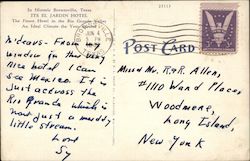 In Historic Brownsville, Texas
ITS EL JARDIN HOTEL
The Finest Hotel in the Rio Grande Valley
An Ideal Climate the Year
BROWNSVILLE
JUN 4
POST CARD
M'dears. From my
window in this very
nice hotel I can
see Mexico. It is
just across the
Rio Grande which is
now just a muddy
little stream.
Love
Sy
R. Allen,
#110 Ward Place,
Woodmere,
Long Island,
New York